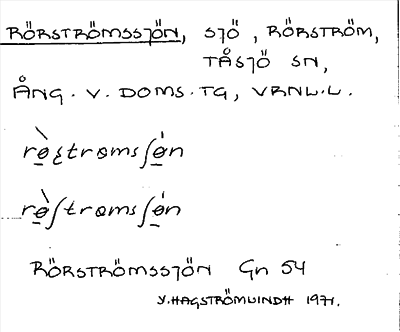 RÖRSTRÖMSSJÖN, SJÖ, RÖRSTRÖM,
TÅSJÖ SN,
ÅNG. V. DOMS. TG, VRNL.L.
rø̀ʂtrømsʃø̀n
rø̀ʃtrømsʃø̀n
RÖRSTRÖMSSJÖN Gn 54
Y. HAGSTRÖM LINDH 1971.